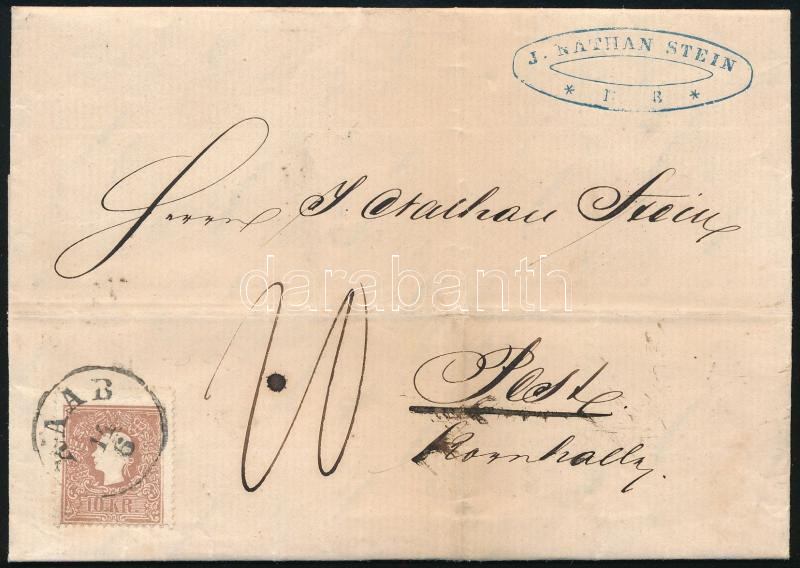 J. NATHAN STEIN
Herrn J. Nathan Stein
darabanth
Pest
Kornhalle
RAAB
10 KR.